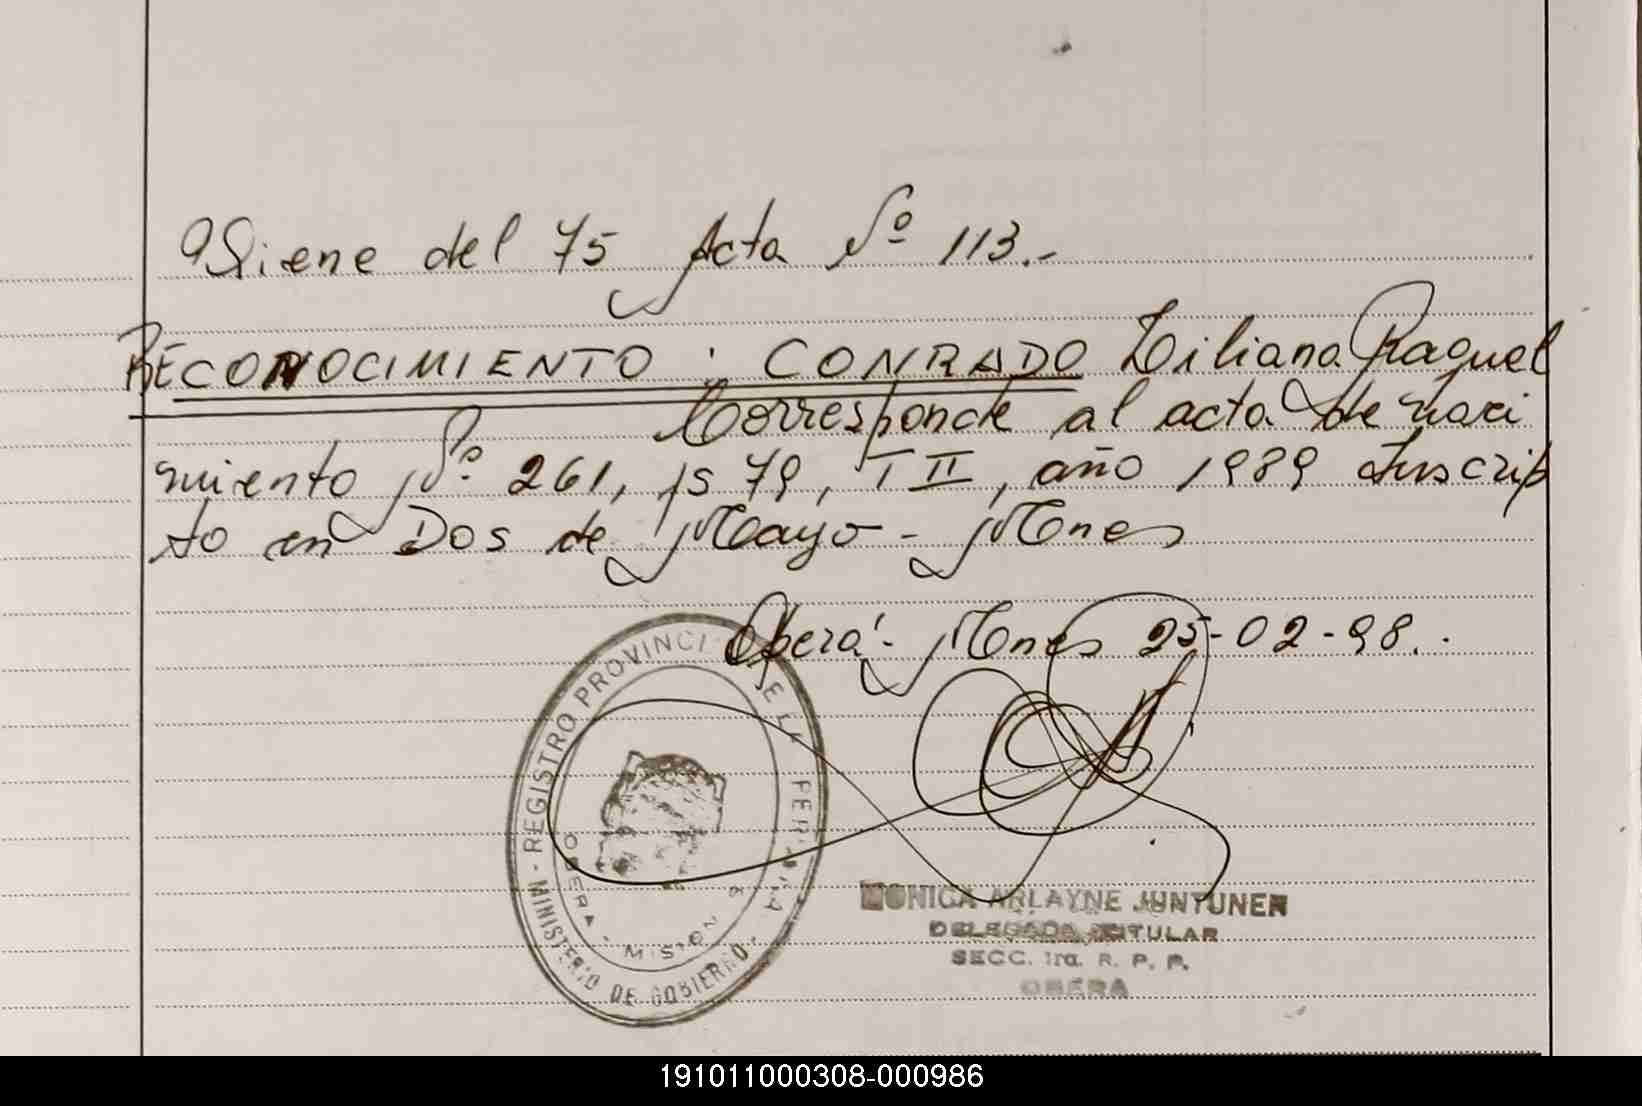 Viene del 75 Acta Nº 113.-
RECONOCIMIENTO : CONRADO Liliana Raquel
Corresponde al acta de naci
miento Nº 261, fs 79, T II, año 1989 Inscrip
to en Dos de Mayo - Mnes
Oberá - Mnes 25-02-98.-
REGISTRO PROVINCI DE LA PER
OBERA - MISION
MINISTERIO DE GOBIERNO
MONICA ARLAYNE JUNTUNEN
DELEGADA TITULAR
SECC. 1ra. R. P. P.
OBERA
191011000308-000986